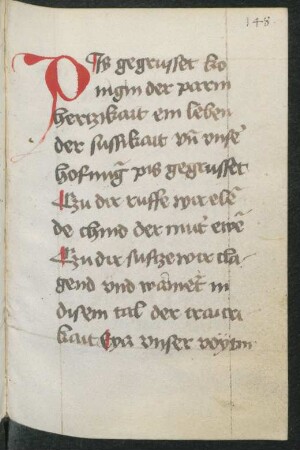 148
Pis gegrusset ko
nigin der parm
herczikait ein leben
der sussikait vn̄ vnse᷑
hofnūg pis gegrusset
Czu dir ruffe wir elē
de chind der mut᷑ ewē
Czu dir sufze wir cla
gend vnd wainēt in
disem tal der traura
kait Eya vnser voytin